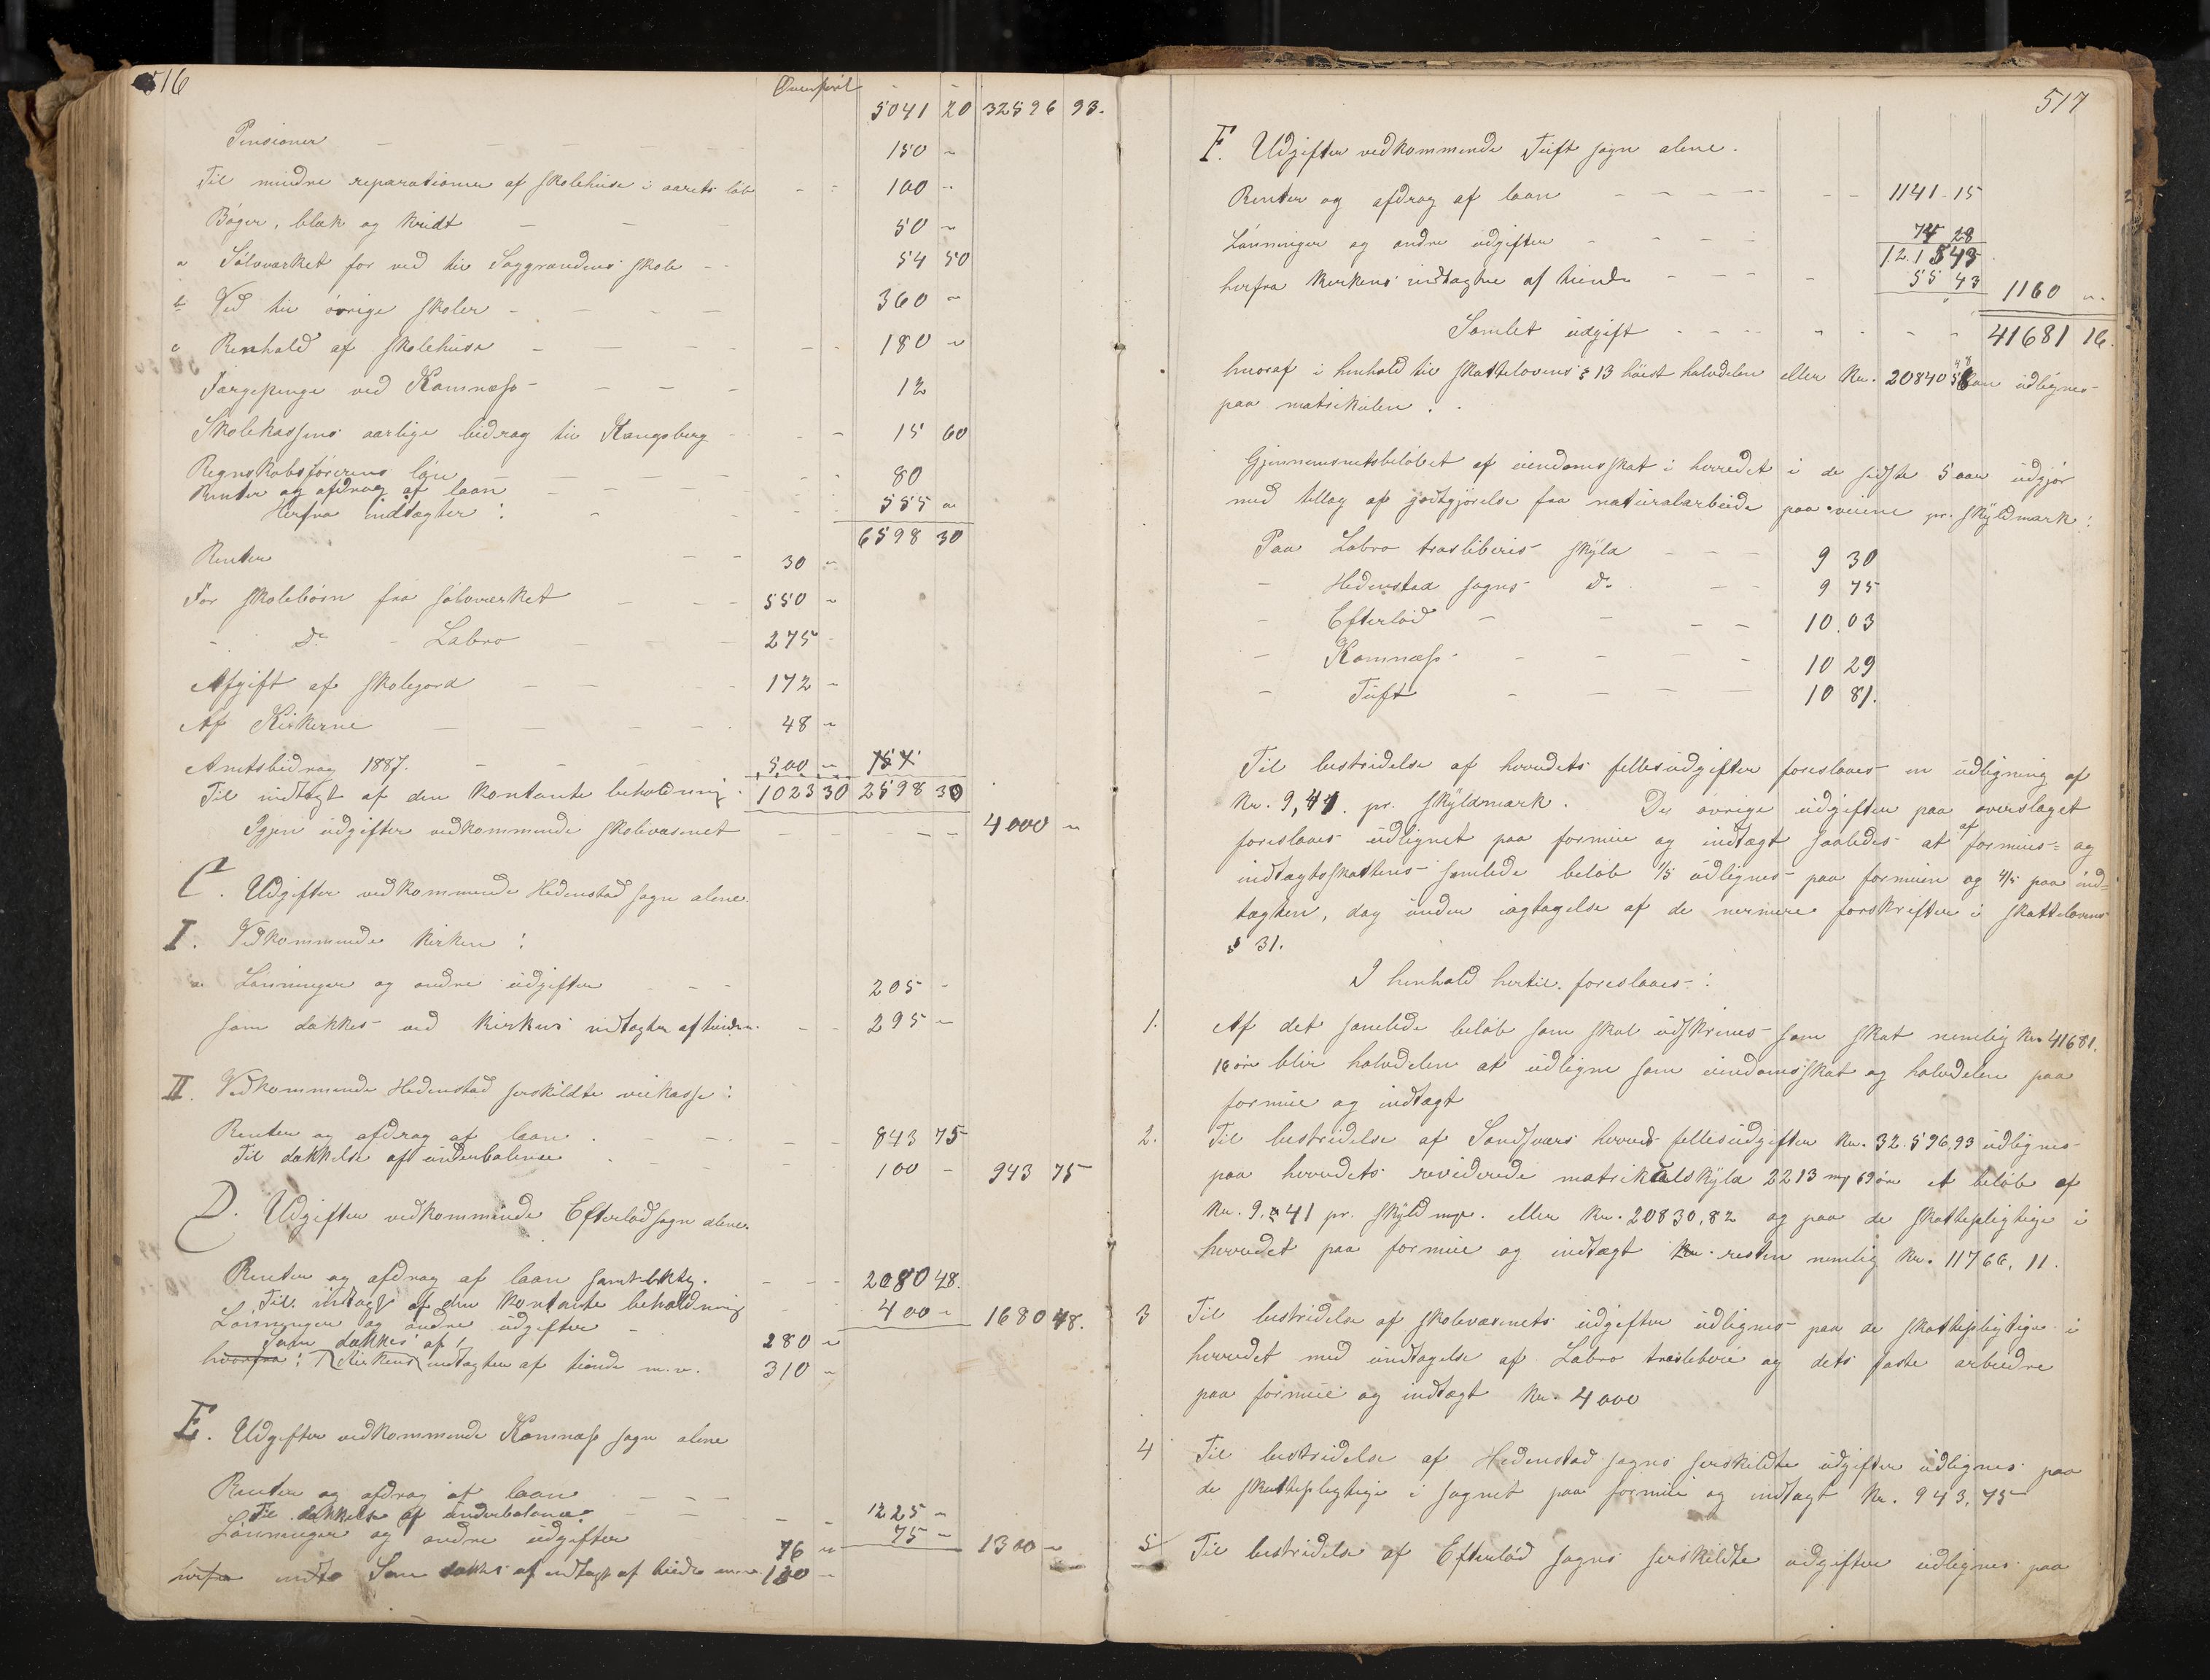 516
Overført 5041 20 32596 93.
Pensioner 150 -
Til mindre reparationer af skolehuse i aarets løb 100 -
Bøger, blæk og kridt 50 -
a Sølvværket for ved til Saggrendens skole 54 50
b Ved til øvrige skoler 360 -
c Renhold af skolehuse 180 -
Færgepenge ved Komnæss 12
Skolekassens aarlige bidrag til Kongsberg 15 60
Regnskabsførerens løn 80
Renter og afdrag af laan 555 -
Herfra indtægter: 6598 30
Renter 30 -
For skolebørn fra sølvværket 550 -
- Do - Labro 275 -
Afgift af skolejord 172 -
Af Kirkerne 48 -
Amtsbidrag 1887. 500 -
Til indtægt af den kontante beholdning 1023 30 2598 30
Igjen udgifter vedkommende skolevæsenet 4000 -
C. Udgifter vedkommende Hedenstad sogn alene.
I. Vedkommende kirken:
a. Lønninger og andre udgifter 205 -
som dækkes ved kirkens indtægter af tienden. 295 -
II. Vedkommende Hedenstad serskildte veikasse:
Renter og afdrag af laan 843 75
Til dækkelse af underbalance 100 - 943 75
D. Udgifter vedkommende Efteløt sogn alene.
Renter og afdrag af laan samt 2080 48.
Til indtægt af den kontante beholdning 400 - 1680 48.
Lønninger og andre udgifter 280 -
Som dækkes af
hvorfra: Kirkens indtægter af tiende m.v. 310 -
E. Udgifter vedkommende Komnæss sogn alene
Renter og afdrag af laan 1225 -
Til dækkelse af underbalance 75 - 1300 -
Lønninger og andre udgifter 76 -
herfra Som dækkes af indtægt af tiende 130 -
517
F. Udgifter vedkommende Tuft sogn alene.
Renter og afdrag af laan 1141 15
Lønninger og andre udgifter 74 28
1215 43
herfra kirkens indtægter af tiende 55 43 1160 -
Samlet udgift 41681 16.
hvoraf i henhold til skattelovens § 13 høiest halvdelen eller Kr. 20840 58 kan udlignes
paa matrikulen.
Gjennemsnitsbeløbet af eiendomsskat i herredet i de sidste 5 aar udgjør
med tillæg af godtgjørelse for naturalarbeide paa veiene pr. skyldmark:
Paa Labro træsliberis skyld 9 30
- Hedenstad sogns Do 9 75
- Efteløt 10.03
- Komnæss 10 29
- Tuft 10 81.
Til bestridelse af herredets fellesudgifter foreslaaes en udligning af
Kr. 9,41. pr. skyldmark. De øvrige udgifter paa overslaget
foreslaaes udlignet paa formue og indtægt saaledes at af formues- og
indtægtsskattens samlede beløb 1/5 udlignes paa formuen og 4/5 paa ind-
tægten, dog under iagtagelse af de nermere forskrifter i skattelovens
§ 31.
I henhold hertil foreslaaes:
1. Af det samlede beløb som skal udskrives som skat nemlig Kr. 41681.
16 øre blir halvdelen at udligne som eiendomsskat og halvdelen paa
formue og indtægt
2. Til bestridelse af Sandsvær herreds fellesudgifter Kr. 32.596,93 udlignes
paa herredets reviderede matrikulskyld 2213 mrk 69 øre et beløb af
Kr. 9.41 pr. skyldmrk. eller Kr. 20830,82 og paa de skattepligtige i
herredet paa formue og indtægt resten nemlig Kr. 11766,11.
3 Til bestridelse af skolevæsenets udgifter udlignes paa de skattepligtige i
herredet med undtagelse af Labro træsliberi og dets faste arbeidre
paa formue og indtægt Kr. 4000
4 Til bestridelse af Hedenstad sogns serskildte udgifter udlignes paa
de skattepligtige i sognet paa formue og indtægt Kr. 943,75
5 Til bestridelse af Efteløt sogns serskildte udgifter udlignes paa